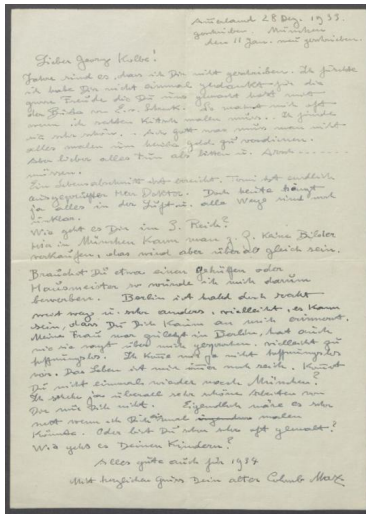 Auerland 28 Dez. 1933.
geschrieben. München
den 11 Jan. neu geschrieben.
Lieber Georg Kolbe!
Jahre sind es, dass ich Dir nicht geschrieben. Ich fürchte
ich habe Dir nicht einmal gedankt für die
gute Freude die Du uns gemacht hast mit
der Büste von
wenn ich selbst Kitsch malen muss. Ich finde
sie sehr schön. Ach Gott was muss man nicht
alles malen um bissl geld zu verdienen.
Aber lieber alles tun als
müssen.
Ein Lebensabschnitt ist erreicht. Toni ist endlich
Herr Doktor. Doch heute hängt
ja alles in der Luft u. alle Wege sind noch
unklar.
Wie geht es Dir im 3. Reich?
Hier in München kann man z. Z. keine Bilder
verkaufen, das wird aber überall gleich sein.
Brauchst Du etwa einen Gehilfen oder
Hausmeister so würde ich mich darum
bewerben. Berlin ist halt doch recht
weit weg u. sehr anders, vielleicht, es kann
sein, dass Du Dich kaum an mich erinnerst.
Meine Frau war zuletzt in Berlin, hat auch
wie sie sagt über mich gesprochen, vielleicht zu
hoffnungslos. Ich bin ja nicht hoffnungslos
Das Leben ist mir immer noch reich. Kommst
Du nicht einmal wieder nach München?
Ich sehe ja überall sehr schöne Arbeiten von
Dir nur Dich nicht. Eigentlich wäre es sehr
nett wenn ich Dich einmal malen
könnte. Oder bist Du schon sehr oft gemalt?
Wie geht es Deinen Kindern?
Alles gute auch für 1934
Mit herzlichem Gruss Dein alter Colomb Max